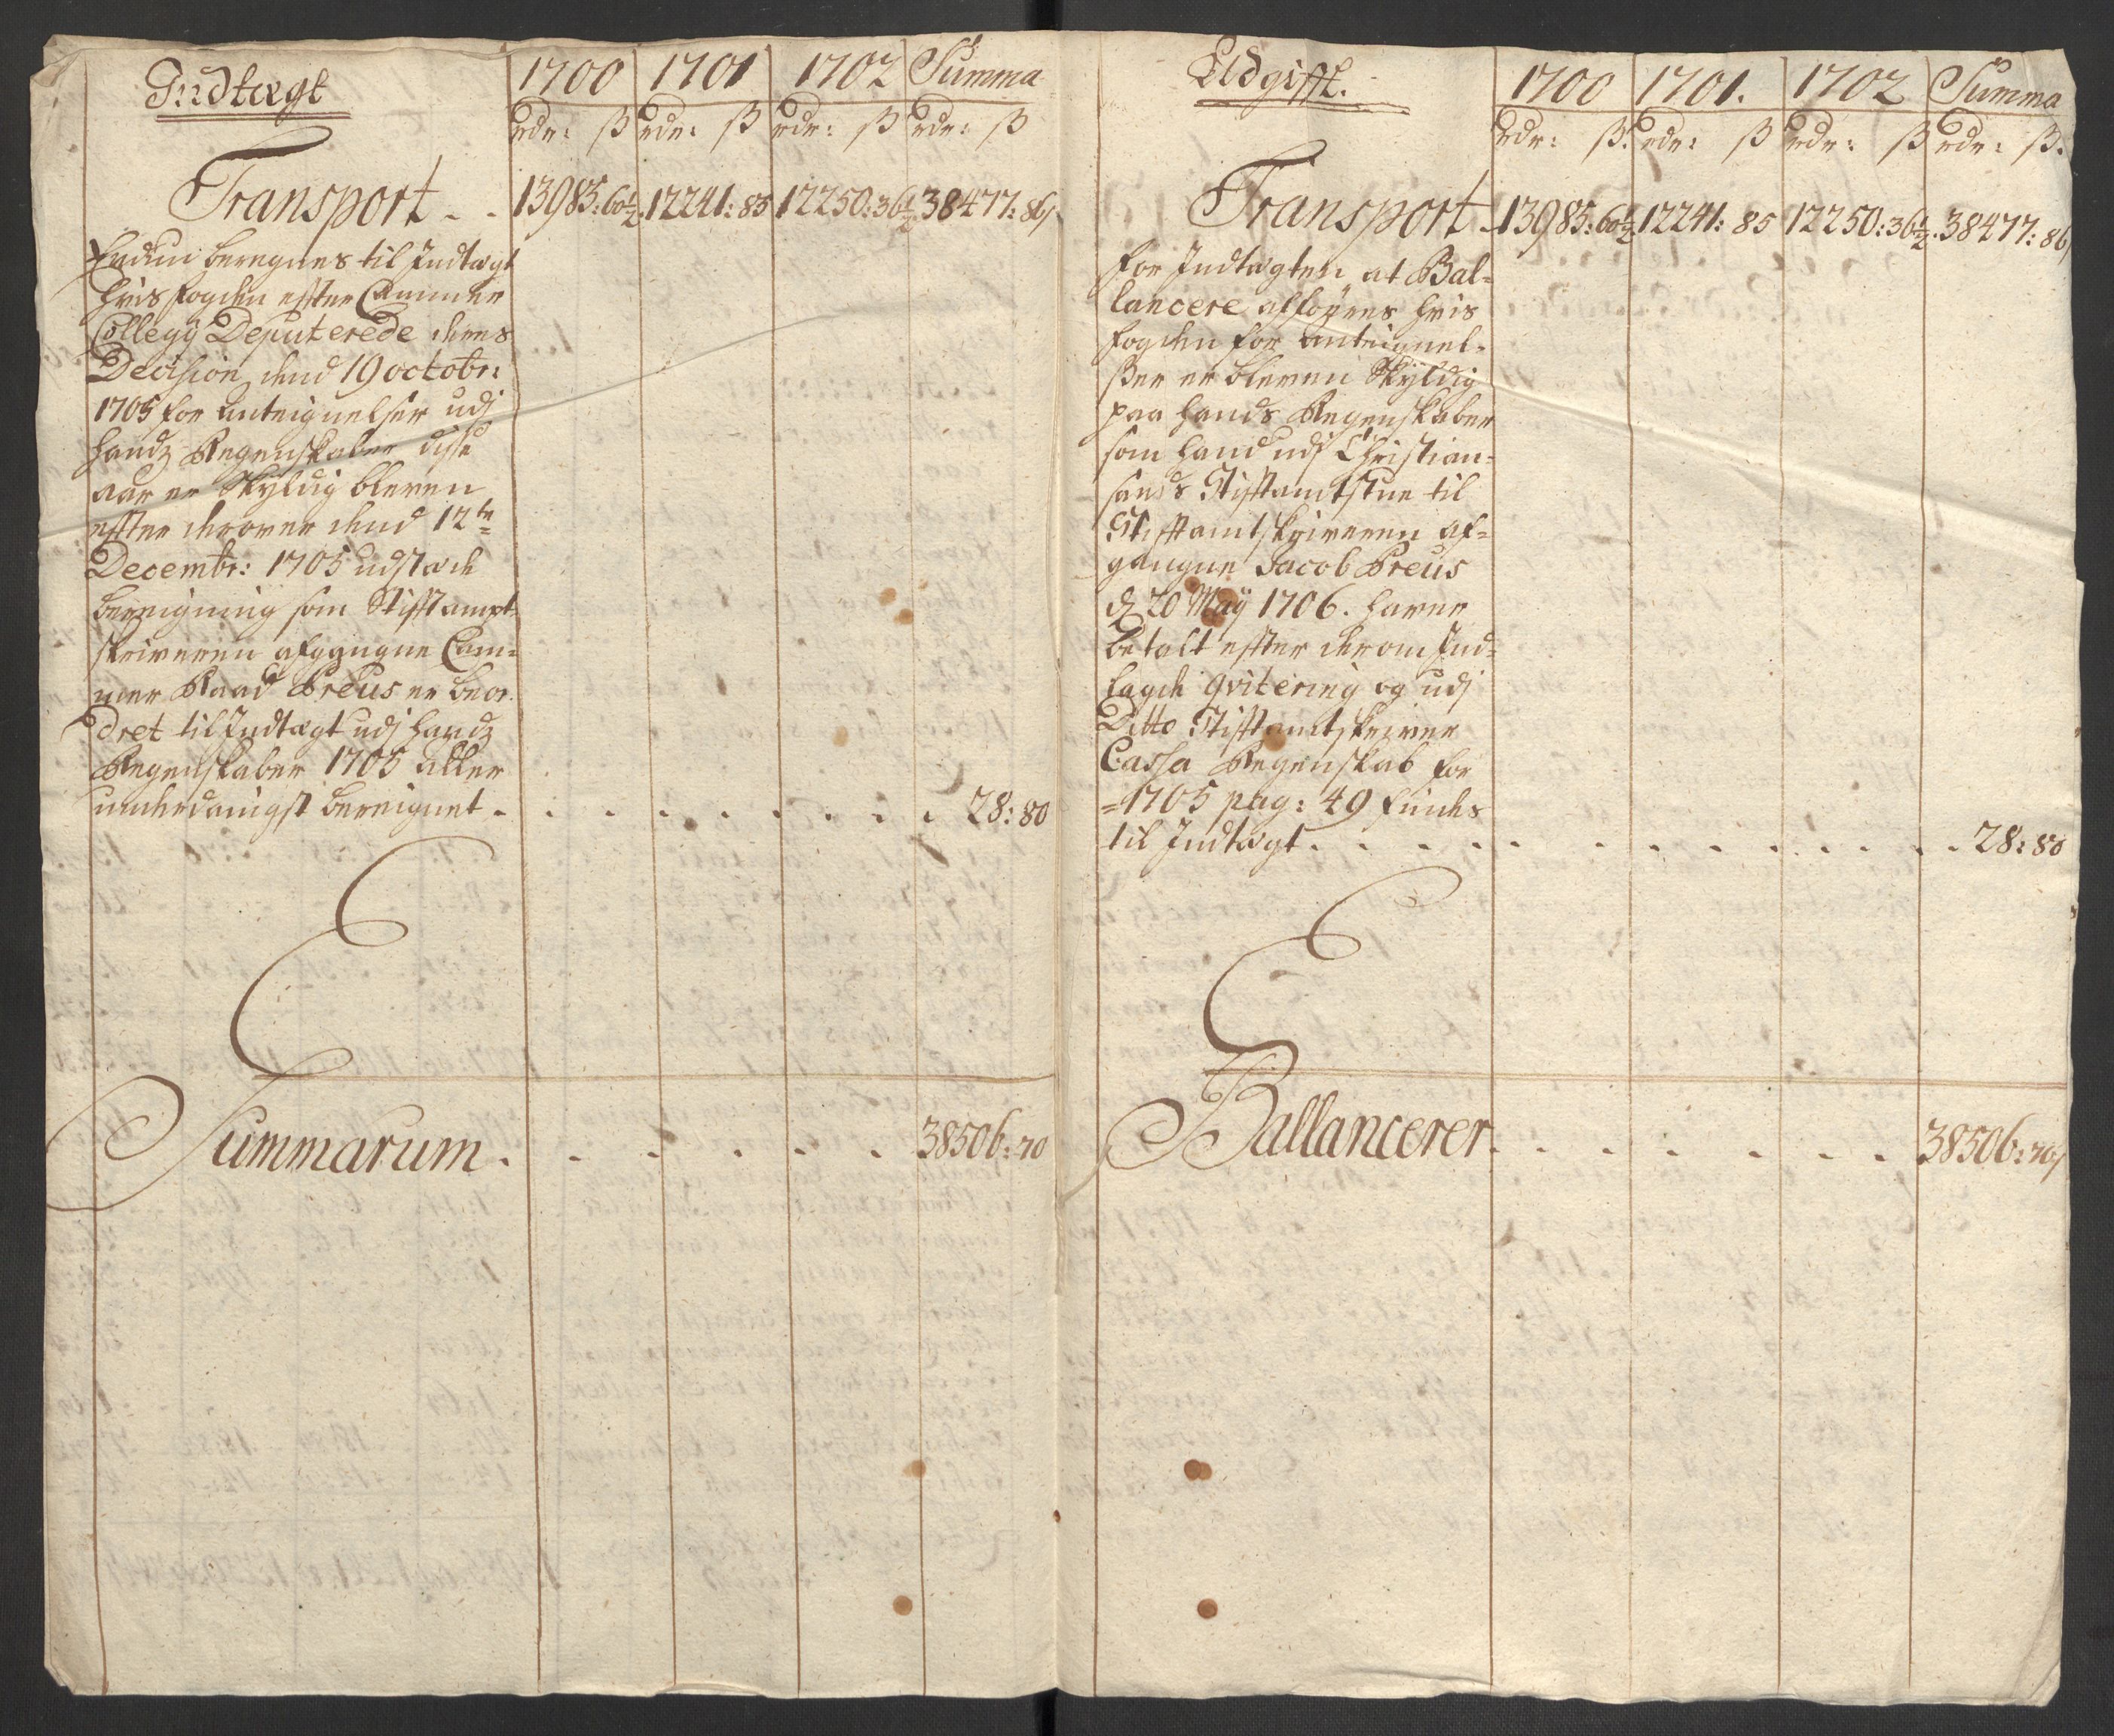 Indtægt
1700 1701 1702 Summa
rdr: ß rdr: ß rdr: ß rdr: ß
Transport - - 13985:60½. 12241:85 12250:36½ 38477:86
Endnu beregnes til Indtægt
hvis fogden effter Cammer
Collegÿ Deputerede deres
Decision dend 19 octobr:
1705 for Anteignelser udj
handz Regenskaber disse
aar er Skyldig bleven
effter derover dend 12te
Decembr: 1705 udstæde
bereigning som Stifftampt
skriveren afgangne Cam=
mer Raad Preus er beor=
dret til Indtægt udj handz
Regenskaber 1705 aller
underdanigst bereignet - 28:80
Summarum. 38506:70
Udgifft.
1700 1701. 1702 Summa
rdr: ß. rdr: ß rdr: ß rdr: ß.
Transport - 13985:60½ 12241:85 12250:36½. 38477:86
for Indtægten at Bal=
lancere afføres hvis
fogden for anteignel=
ßer er bleven Skyldig
paa hands Regenskaber
som hand udj Christian=
sands Stifftamtstue til
Stifftamtskriveren af=
gangne Jacob Preus
d 20 Maÿ 1706. haver
betalt effter derom Ind=
lagde qvitering og udj
Ditto Stifftamtskriver
Cassa Regenskab for
=1705 pag: 49 findes
til Indtægt. 28:80
Ballancerer. 38506:70